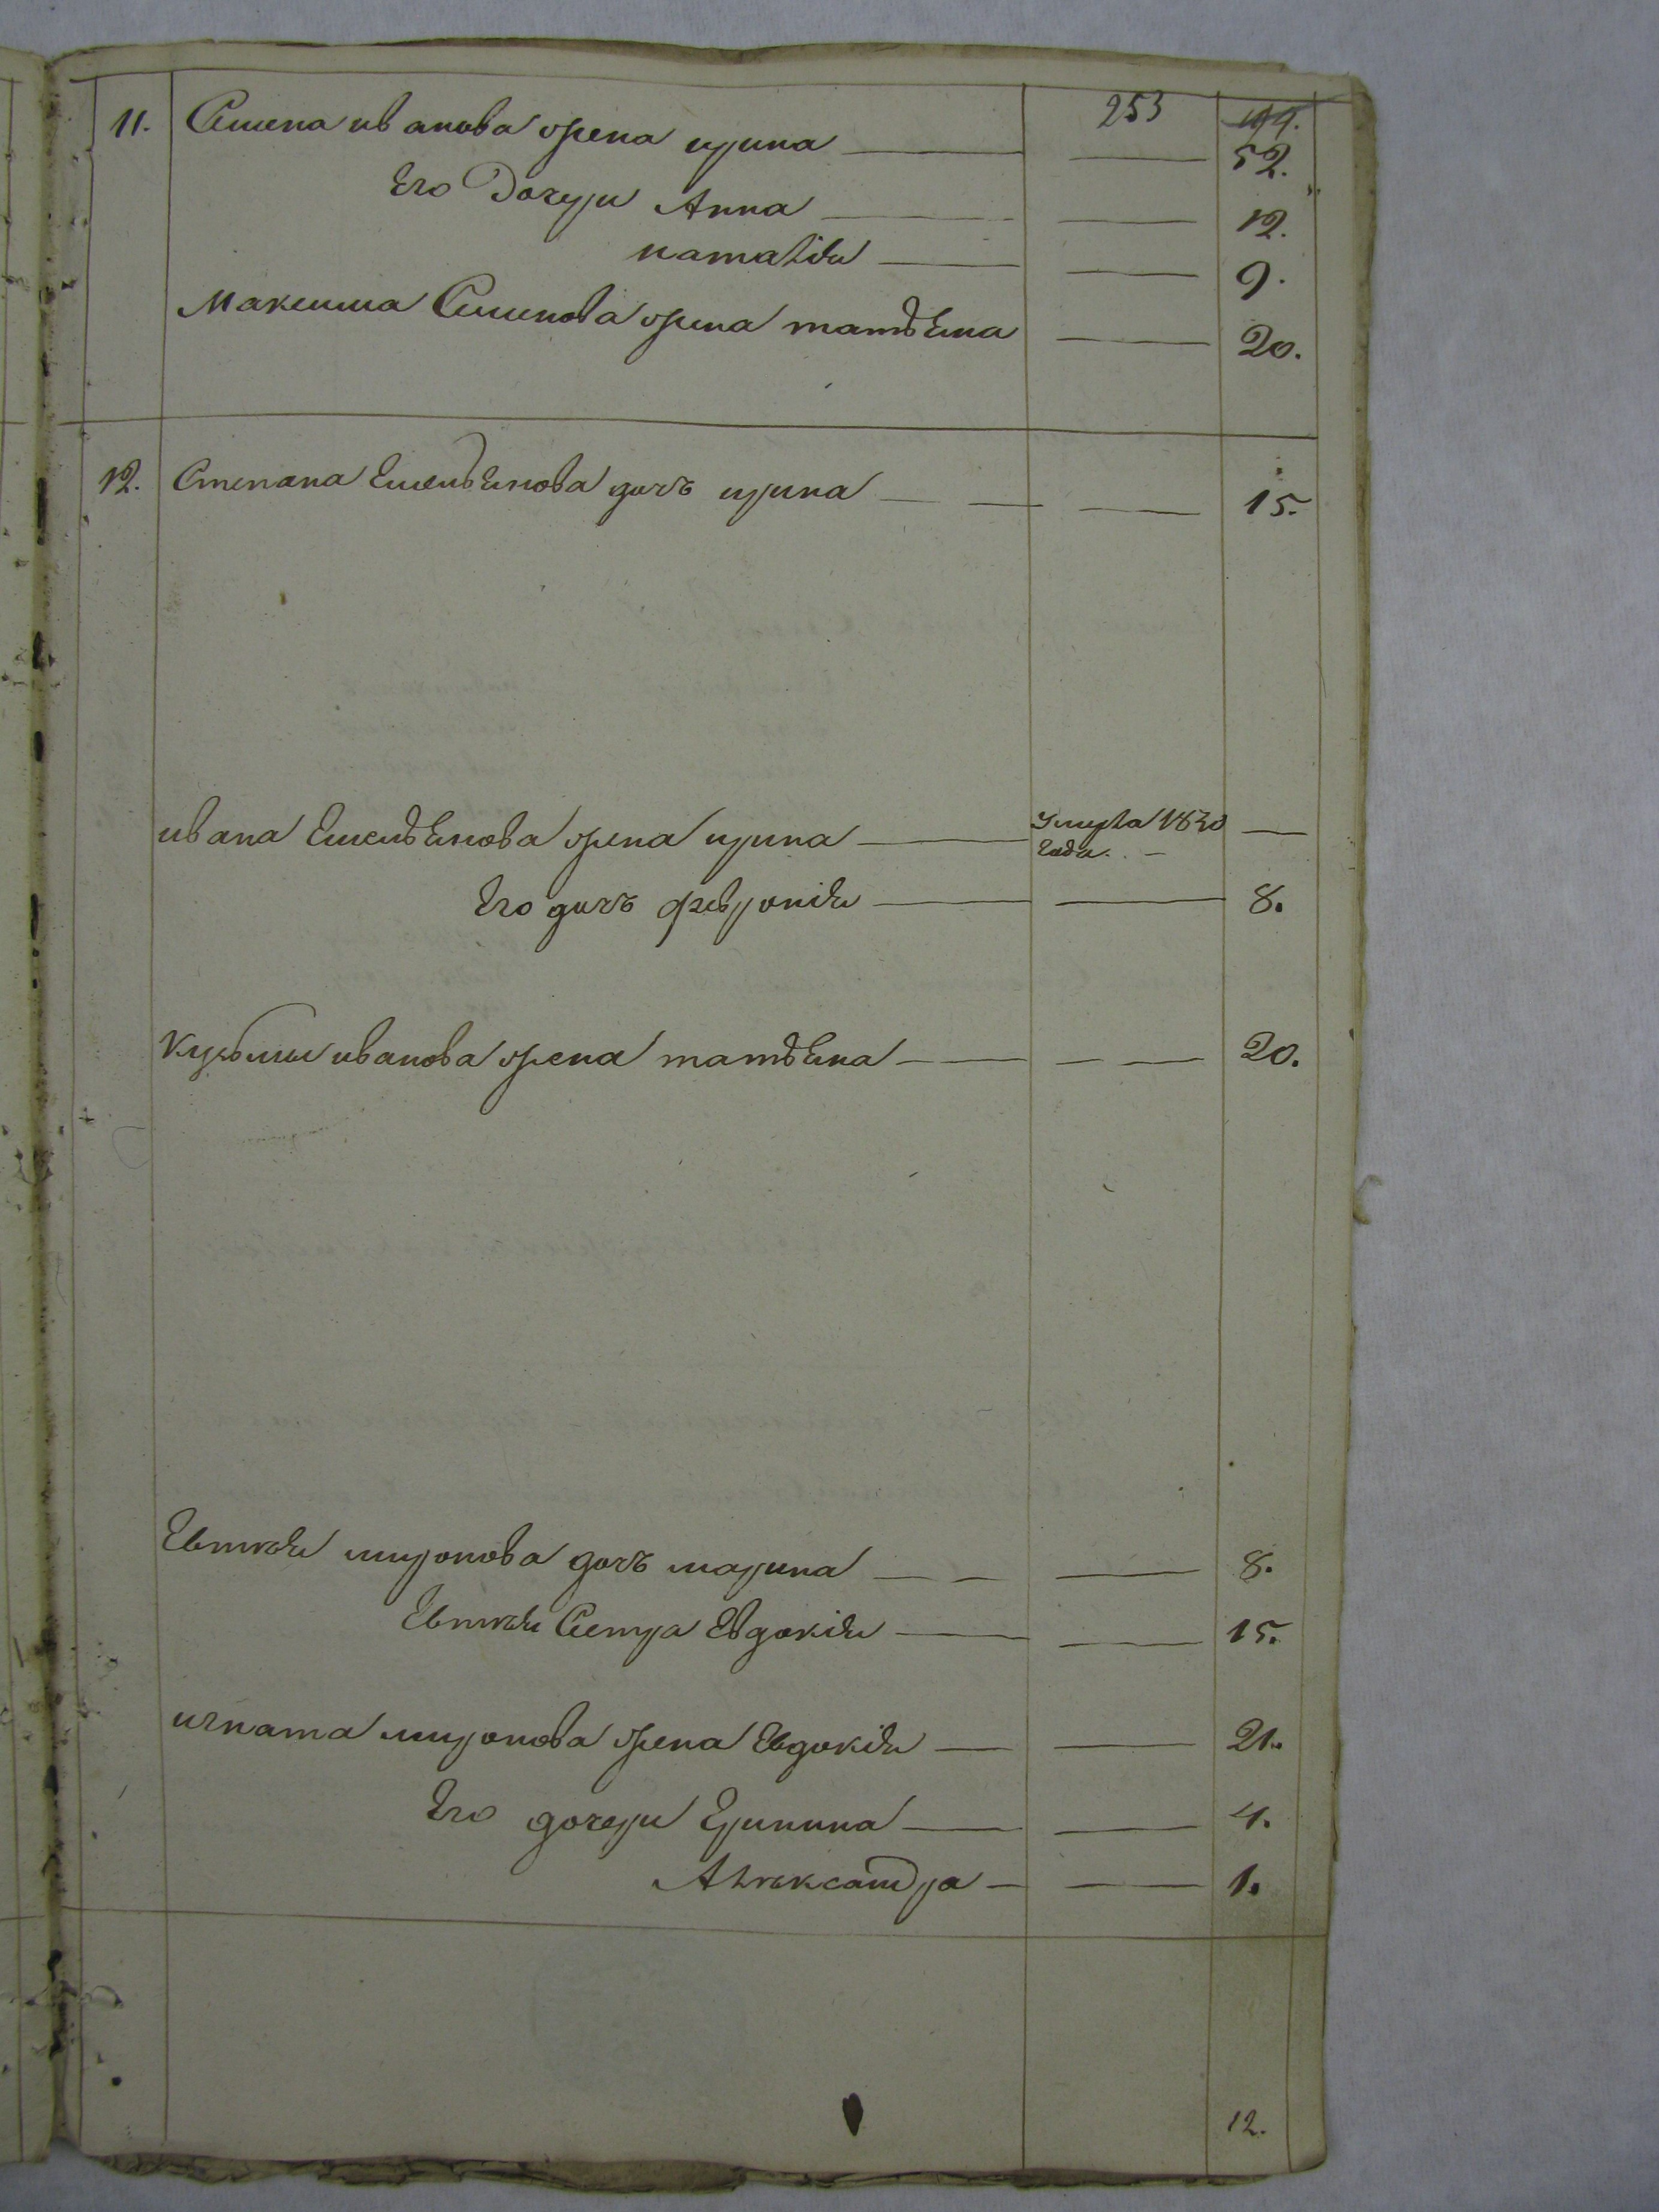 253
11. Семена иванова жена ирина — — 52.
Его Дочери Анна — — 12.
наталья — — 9.
Максима Семенова жена татьяна — 20.
12. Степана Емельянова дочь ирина — — 15.
ивана Емельянова жена ирина — Умерла 1830 —
года. —
Его дочь февронія — — 8.
Кузьмы иванова жена татьяна — — 20.
миронова дочь марина — — 8.
Сестра Евдокія — — 15.
игната миронова жена Евдокія — — 21.
Его дочери — — 4.
Александра — — 1.
12.